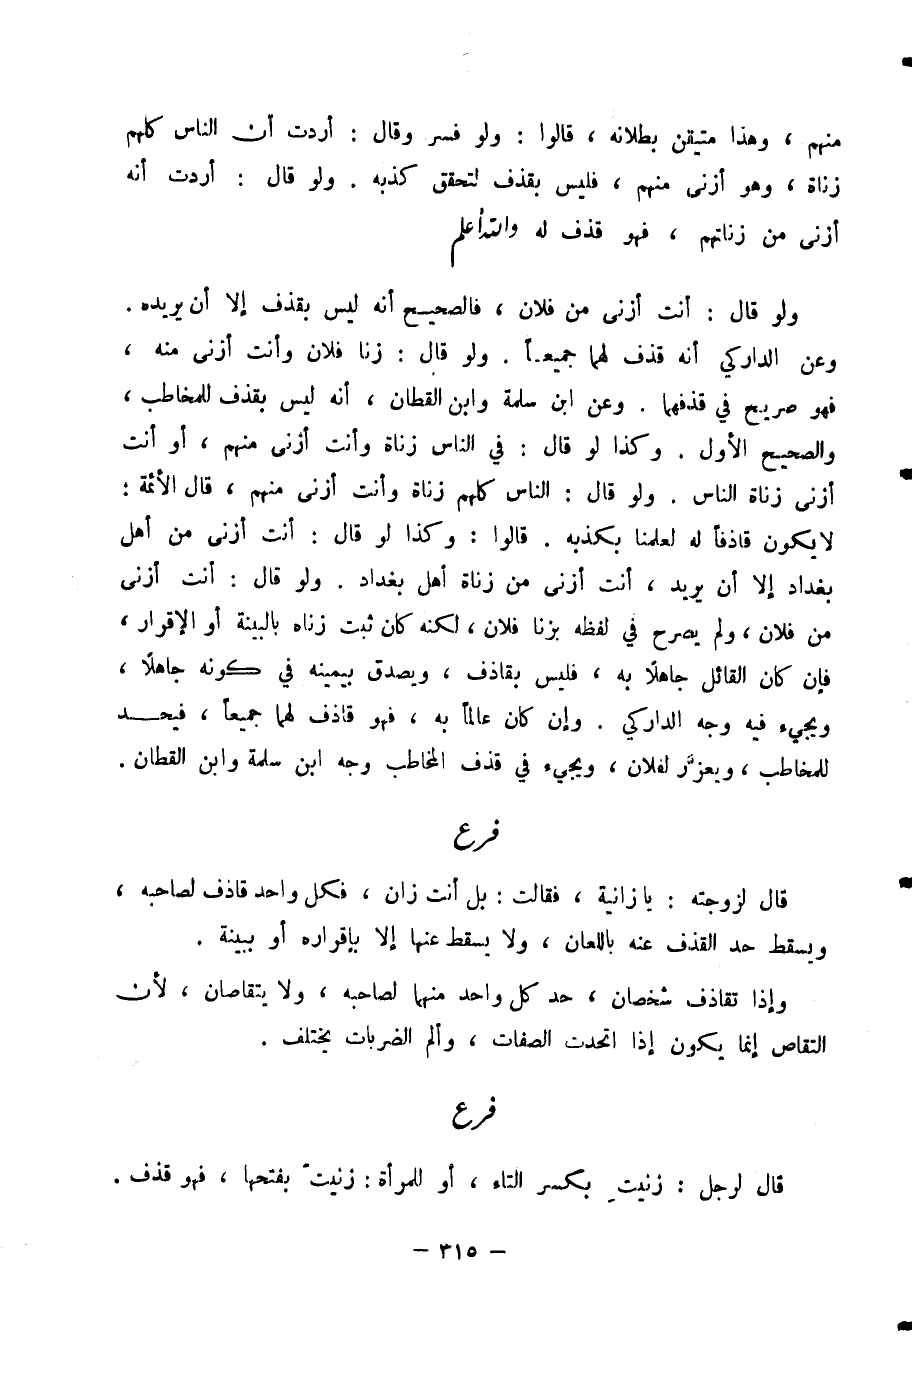 منهم ، وهذا متيقن بطلانه ، قالوا : ولو فسر وقال : أردت أن الناس كلهم
زناة ، وهو أزنى منهم ، فليس بقذف لتحقق كذبه . ولو قال : أردت أنه
أزنى من زناتهم ، فهو قذف له والله أعلم
ولو قال : أنت أزنى من فلان ، فالصحيح أنه ليس بقذف إلا أن يريده .
وعن الداركي أنه قذف لهما جميعاً . ولو قال : زنا فلان وأنت أزنى منه ،
فهو صريح في قذفهما . وعن ابن سلمة وابن القطان ، أنه ليس بقذف للمخاطب ،
والصحيح الأول . وكذا لو قال : في الناس زناة وأنت أزنى منهم ، أو أنت
أزنى زناة الناس . ولو قال : الناس كلهم زناة وأنت أزنى منهم ، قال الأئمة :
لايكون قاذفاً له لعلمنا بكذبه . قالوا : وكذا لو قال : أنت أزنى من أهل
بغداد إلا أن يريد ، أنت أزنى من زناة أهل بغداد . ولو قال : أنت أزنى
من فلان ، ولم يصرح في لفظه بزنا فلان ، لكنه كان ثبت زناه بالبينة أو الإقرار ،
فإن كان القائل جاهلًا به ، فليس بقاذف ، ويصدق بيمينه في كونه جاهلًا ،
ويجيء فيه وجه الداركي . وإن كان عالماً به ، فهو قاذف لهما جميعاً ، فيحد
للمخاطب ، ويعزَّر لفلان ، ويجيء في قذف المخاطب وجه ابن سلمة وابن القطان .
فرع
قال لزوجته : يا زانية ، فقالت : بل أنت زان ، فكل واحد قاذف لصاحبه ،
ويسقط حد القذف عنه باللعان ، ولا يسقط عنها إلا بإقراره أو ببينة .
وإذا تقاذف شخصان ، حد كل واحد منهما لصاحبه ، ولا يتقاصان ، لأن
التقاص إنما يكون إذا اتحدت الصفات ، وألم الضربات يختلف .
فرع
قال لرجل : زنيتِ بكسر التاء ، أو للمرأة : زنيتَ بفتحها ، فهو قذف .
– ٣١٥ –